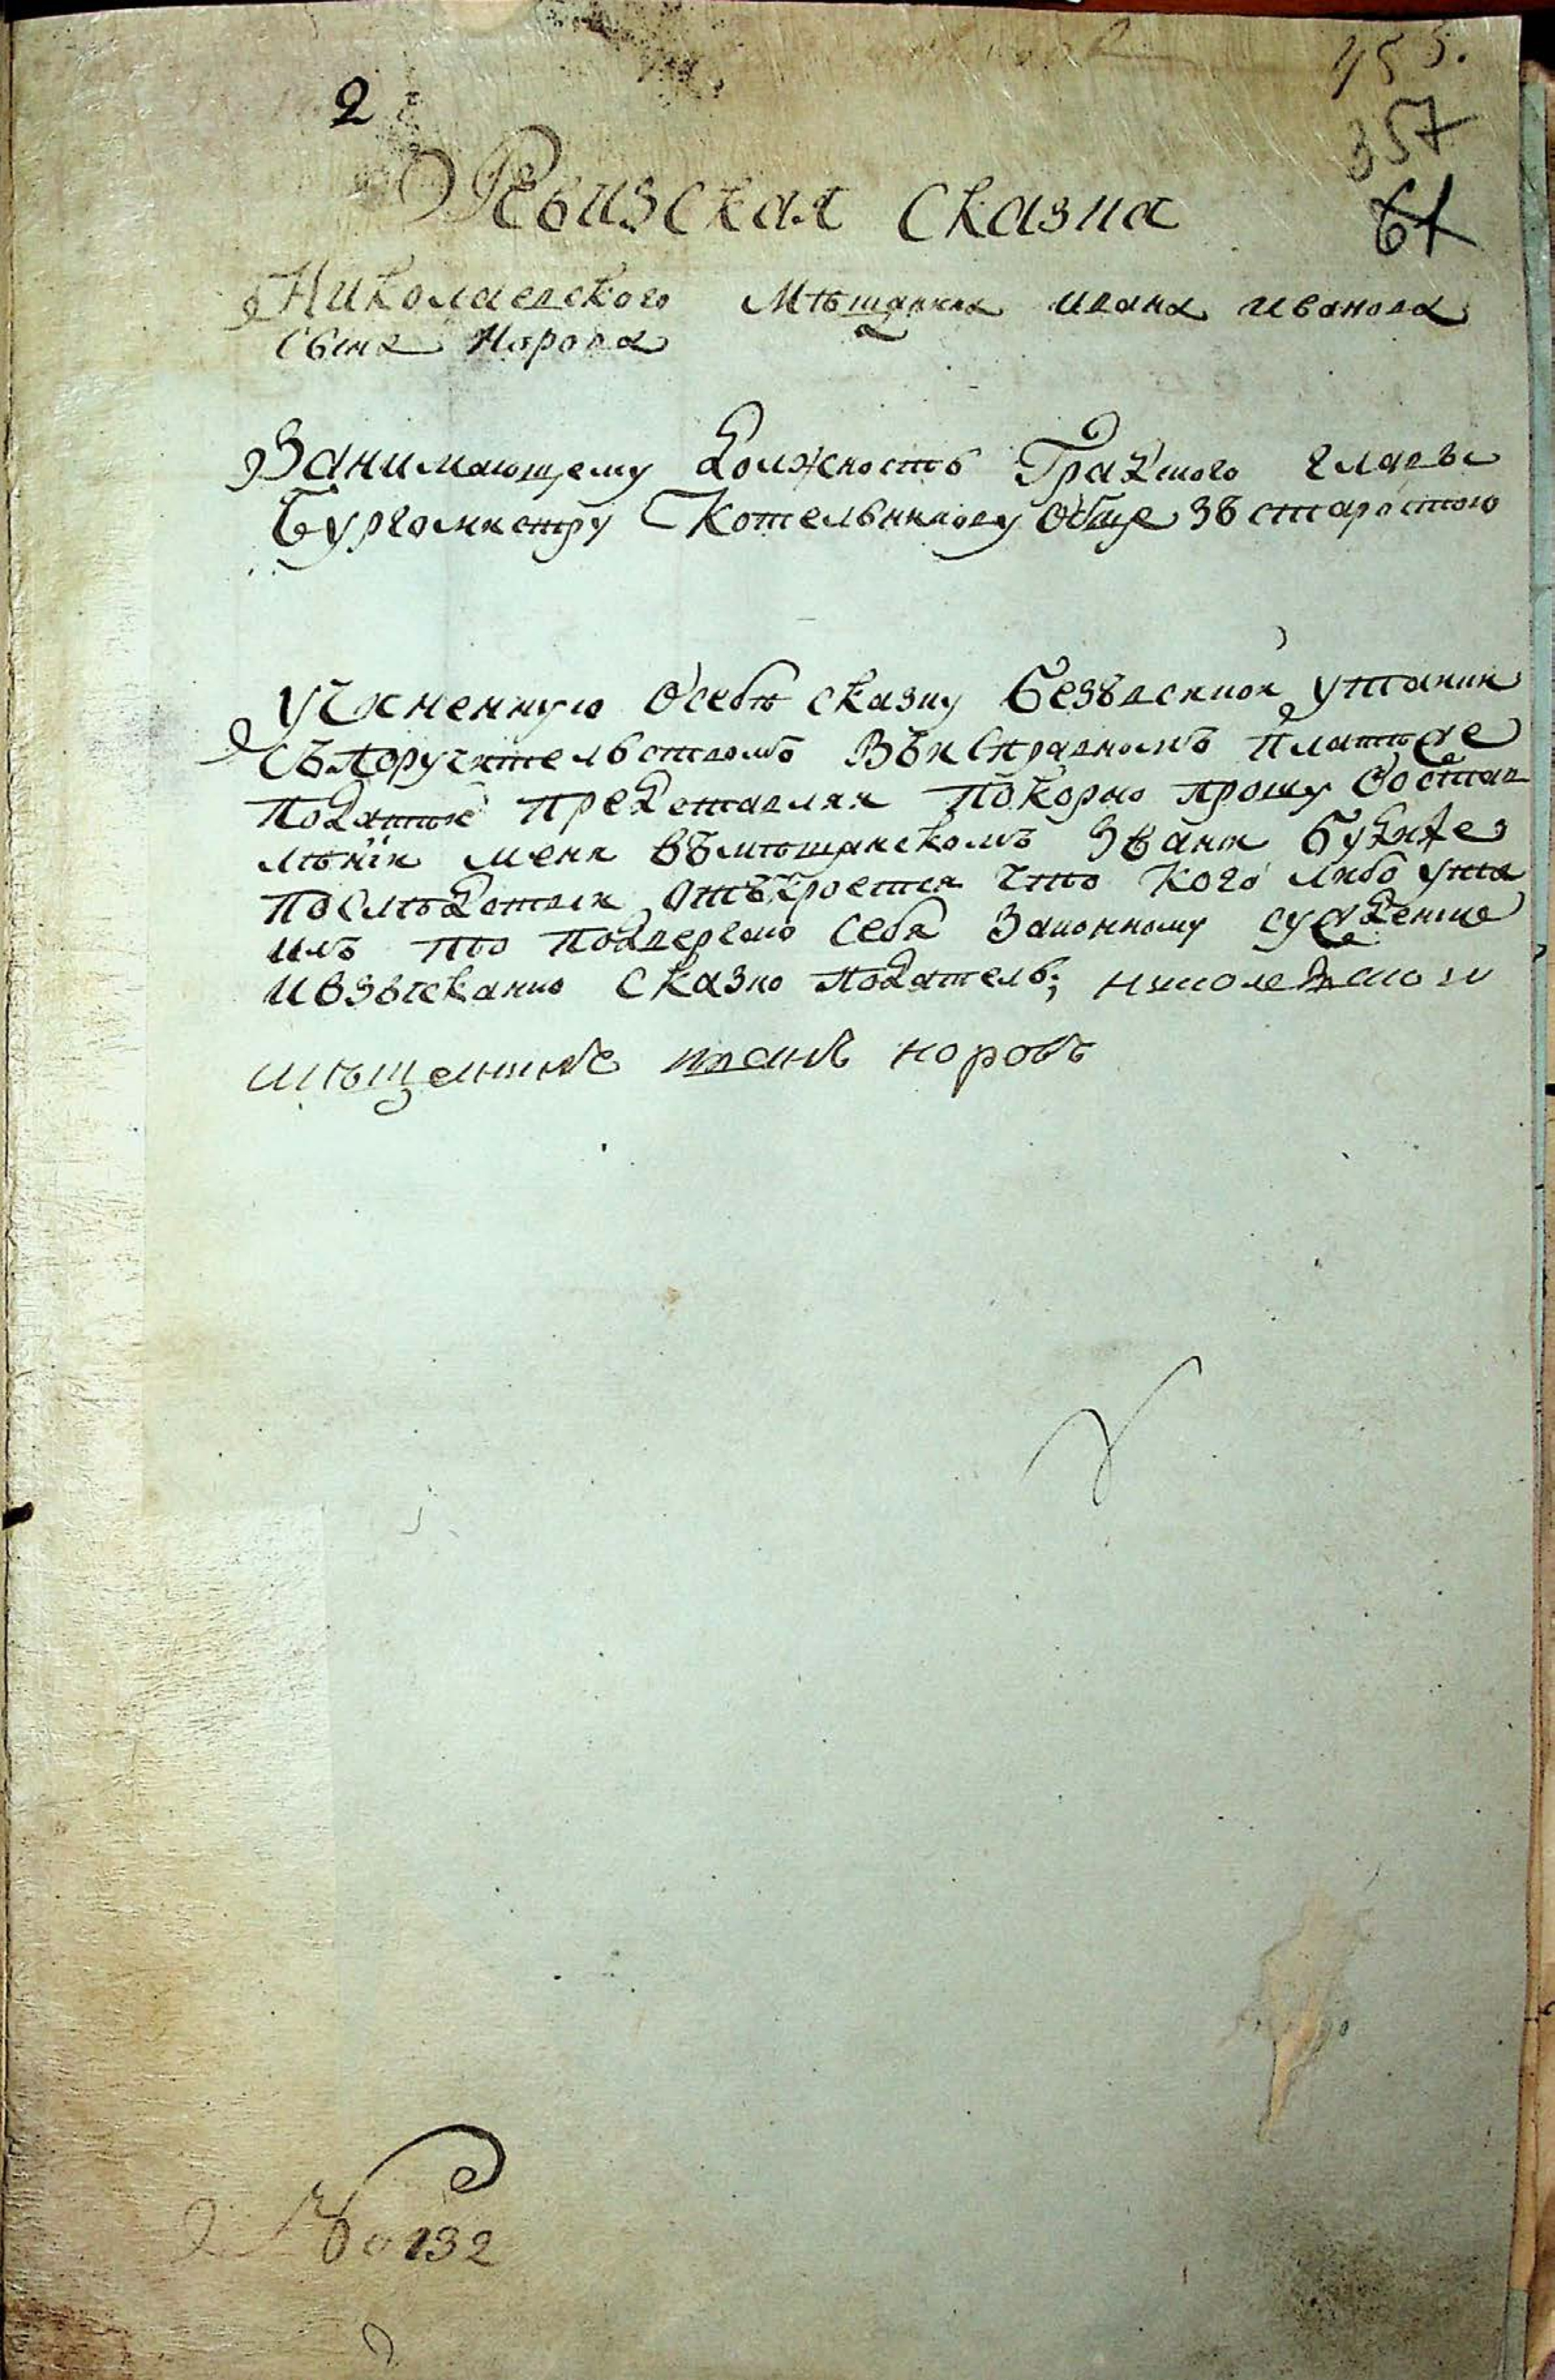 2
455.
357
61
Ревизская Сказка
Николаевского Мѣщанина Ивана Иванова
Сына Норова
Занимающему Должность Градского главы
Бургомистру Котельникову Обще зъ старостою
Учиненную Осебѣ Сказку безъвсякой утайки
Съпоручительствомъ Въисправномъ платеже
Податей представляя покорно прошу Оостав
лѣніи меня въмѣщанскомъ звани будиже
послѣдствіи отъкроется что кого либо ута
илъ то подвергаю себя Законному суждению
ивзысканию Сказко податель; николаевской
мѣщенинъ иванъ норовъ
№ 132